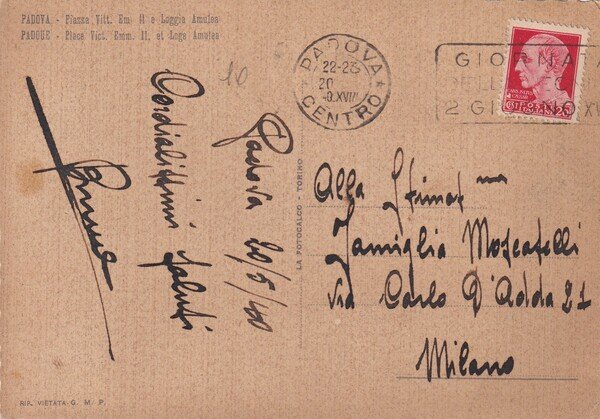 PADOVA - Piazza Vitt. Em. II e Loggia Amulea
PADOUE - Place Vict. Emm. II, et Loge Amulea
10
PADOVA
22-23
20
XVIII
CENTRO
GIORNATA
2 GIUGNO XV
Padova 20/5/40
Cordialissimi saluti
LA FOTOCALCO - TORINO
Alla Stimat ma
Famiglia Moscatelli
via Carlo D'Adda 21
Milano
RIP. VIETATA G. M. P.